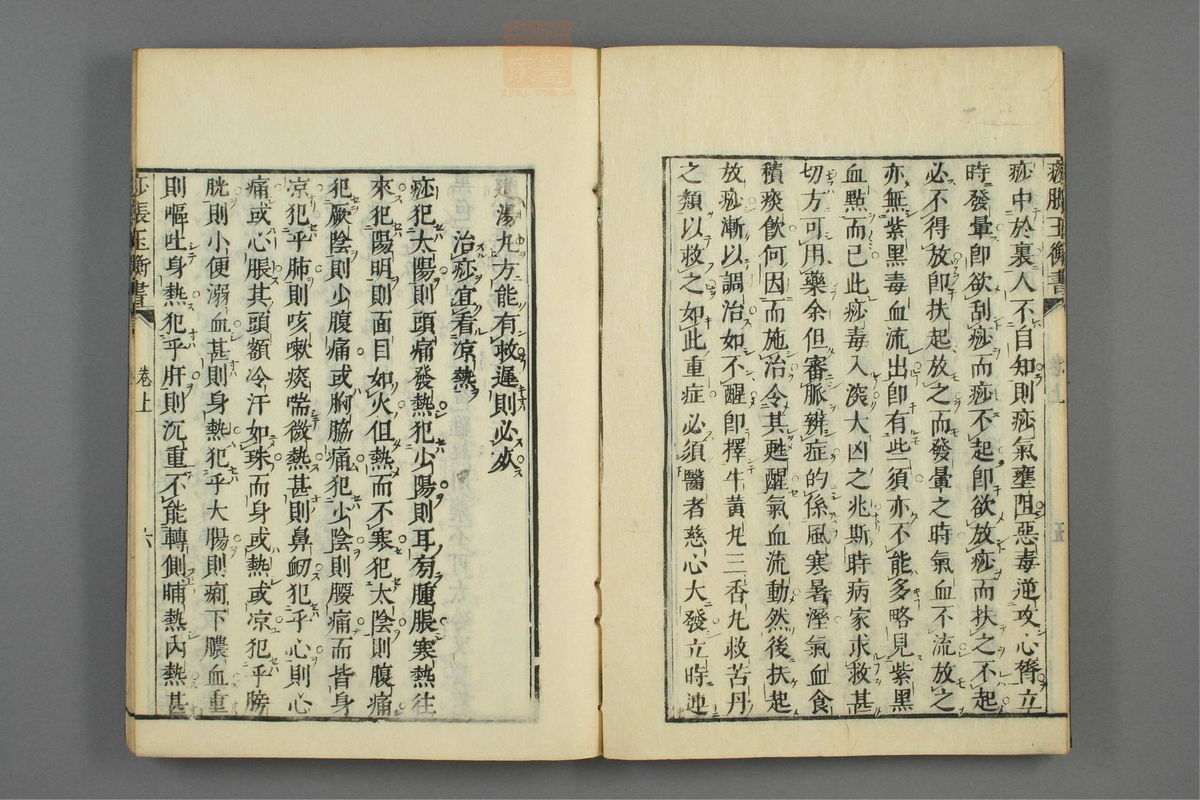 痧脹玉衡書
痧中於裏人不自知則痧氣壅阻惡毒逆攻心膂立
時發暈卽欲刮痧而痧不起卽欲放痧而扶之不起
必不得放卽扶起放之而發暈之時氣血不流放之
亦無紫黑毒血流出卽有些須亦不能多略見紫黑
血點而已此痧毒入深大凶之兆斯時病家求救甚
切方可用藥余但審脈辨症的係風寒暑溼氣血食
積痰飲何因而施治令其甦醒氣血流動然後扶起
放痧漸以調治如不醒卽擇牛黃丸三香丸救苦丹
之類以救之如此重症必須醫者慈心大發立時連
卷上
五
湯九方能有救遲則必死
治痧宜看凉熱
痧犯太陽則頭痛發熱犯少陽則耳有腫脹寒熱往
來犯陽明則面目如火但熱而不寒犯太陰則腹痛
犯厥陰則少腹痛或胸脇痛犯少陰則腰痛而皆身
凉犯乎肺則咳嗽痰喘微熱甚則鼻衂犯乎心則心
痛或心脹其頭額冷汗如珠而身或熱或凉犯乎膀
胱則小便溺血甚則身熱犯乎大腸則痢下膿血重
則嘔吐身熱犯乎肝則沉重不能轉側晡熱內熱甚
痧脹玉衡書
卷上
六
zysj.com.cn